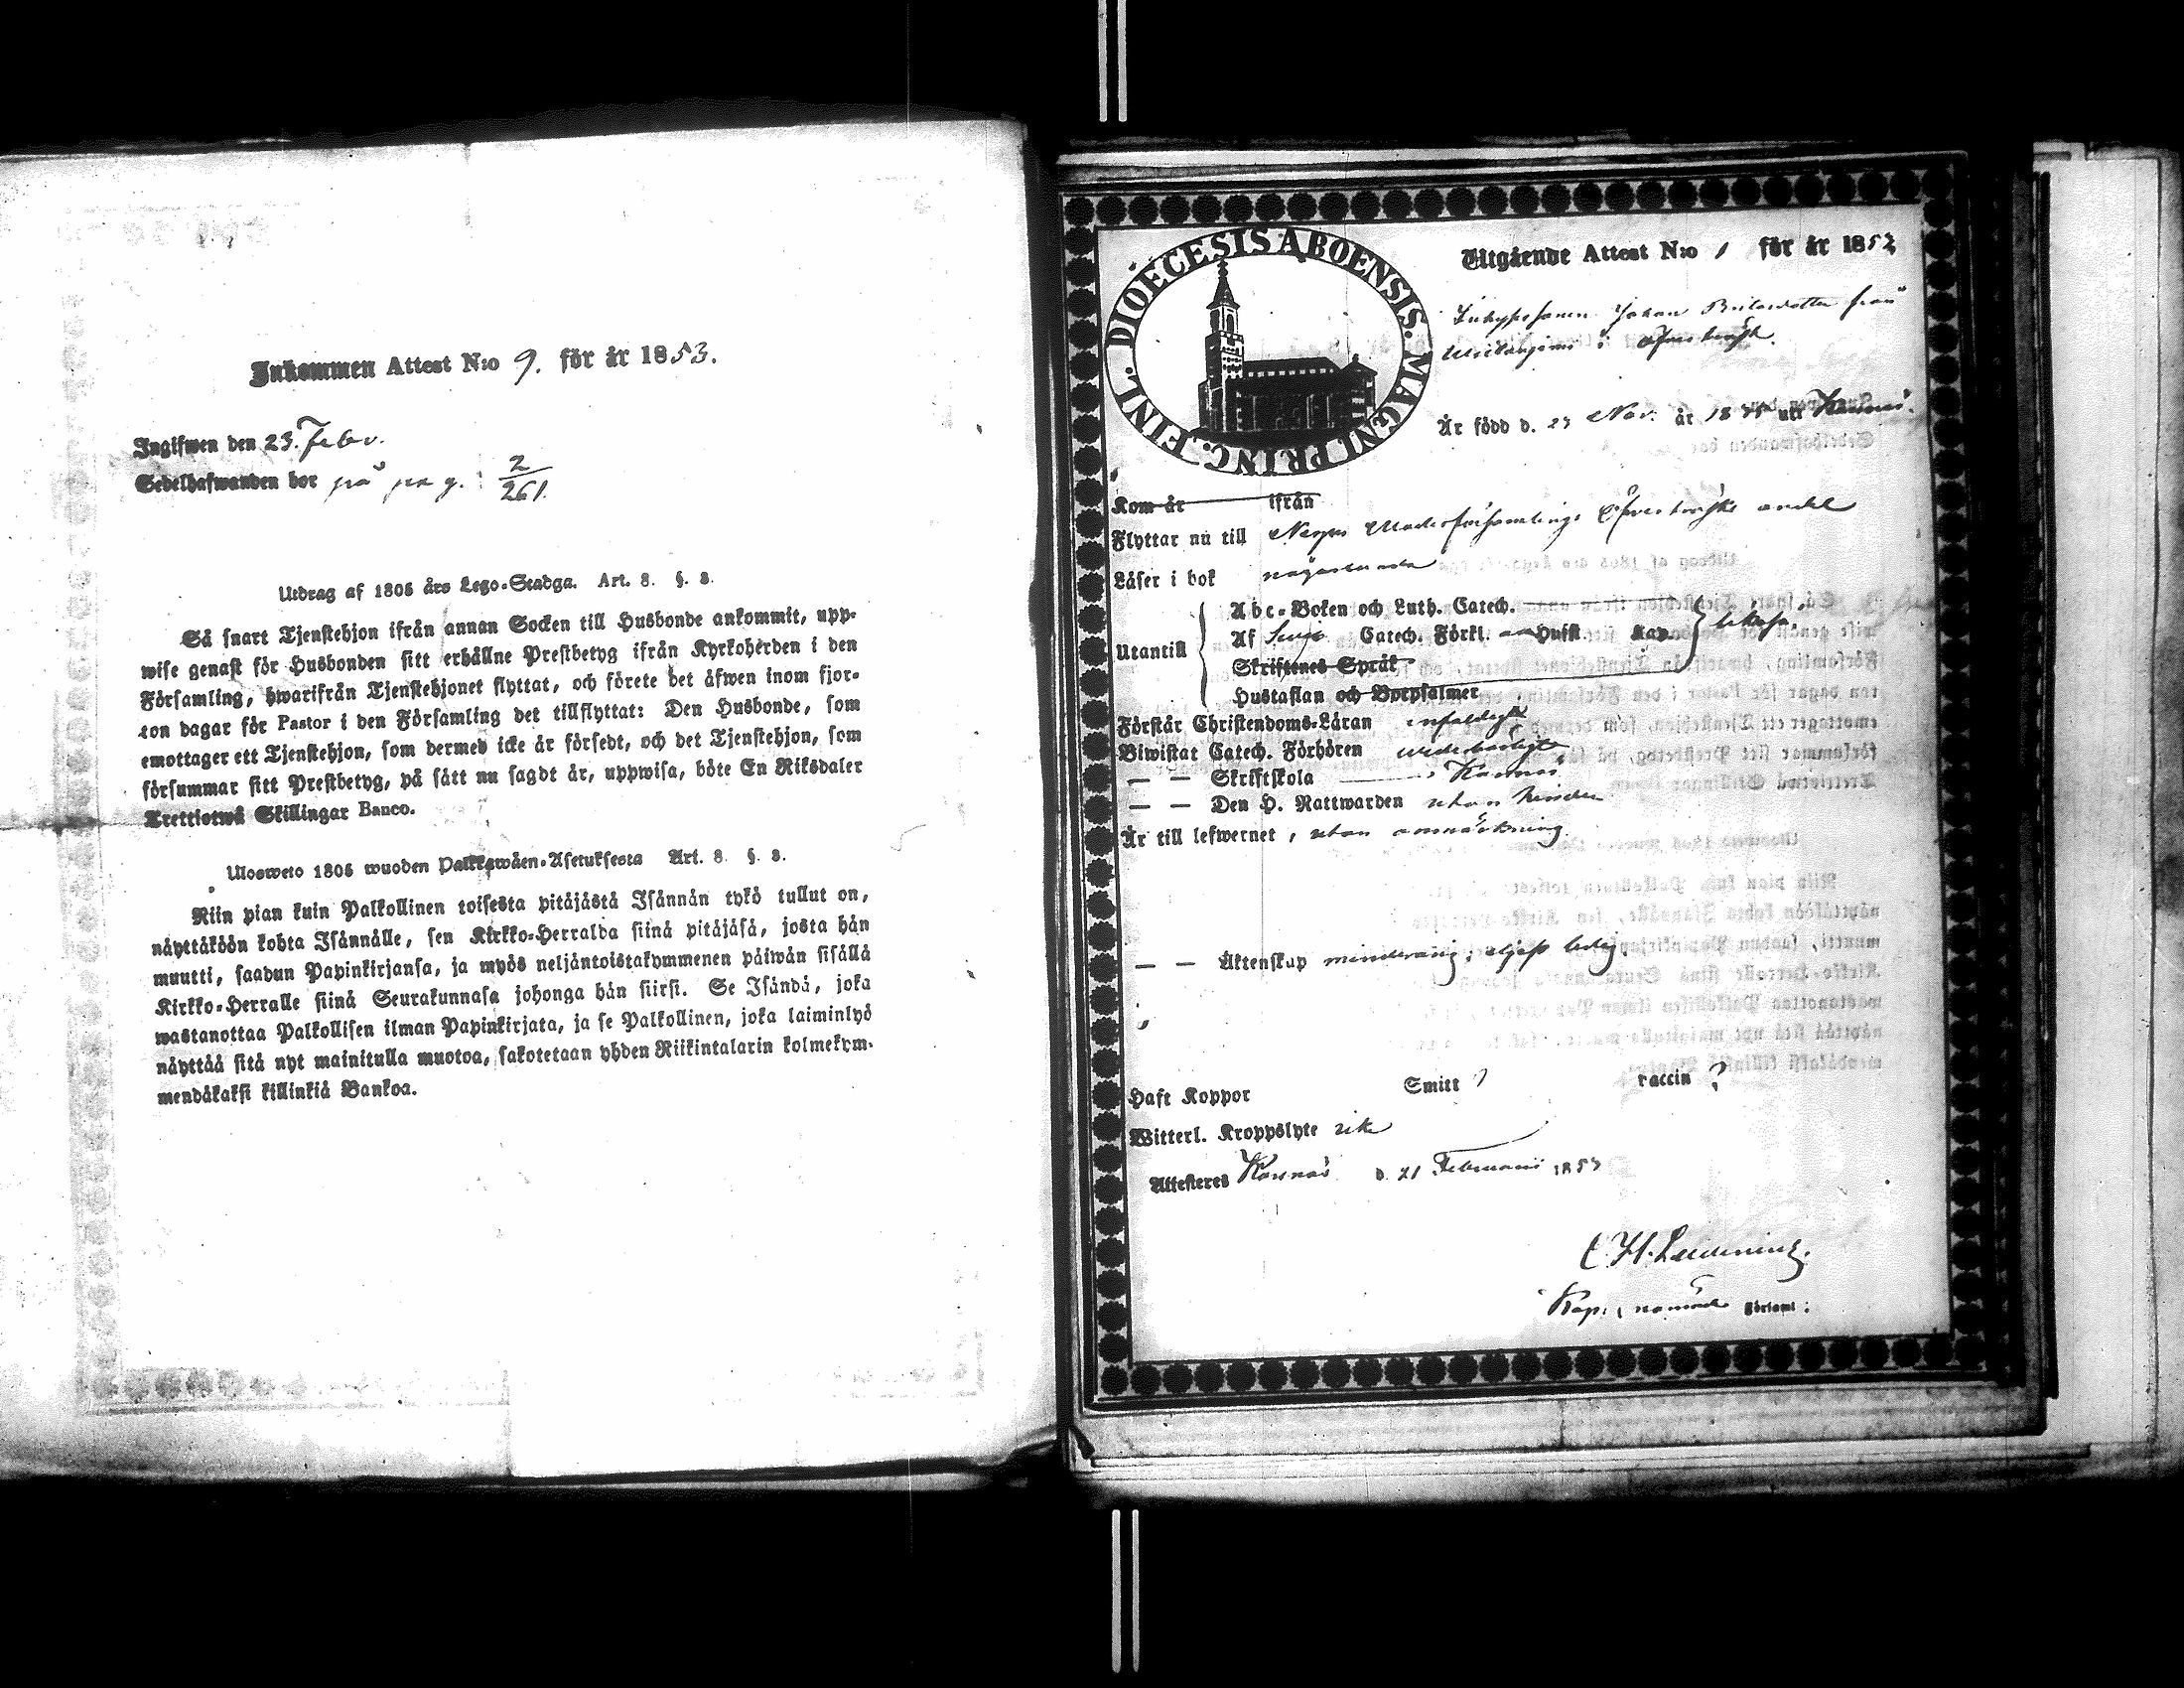 Inkommen Attest N:o 9. för år 1853.
Ingifwen den 23. Febr.
Sedelhafwanden bor på pag. : 2/261.
Utdrag af 1805 års Lego-Stadga. Art. 8. §. 3.
Så snart Tjenstehjon ifrån annan Socken till Husbonde ankommit, upp-
wise genast för Husbonden sitt erhållne Prestbetyg ifrån Kyrkoherden i den
Församling, hwarifrån Tjenstehjonet flyttat, och förete det äfwen inom fjor-
ton dagar för Pastor i den Församling det tillflyttat: Den Husbonde, som
emottager ett Tjenstehjon, som dermed icke är försedt, och det Tjenstehjon, som
försummar sitt Prestbetyg, på sätt nu sagdt är, uppwisa, böte En Riksdaler
Trettiotwå Skillingar Banco.
Ulosweto 1805 wuoden Palkkawäen-Asetuksesta Art. 8. §. 3.
Niin pian kuin Palkollinen toisesta pitäjästä Isännän tykö tullut on,
näyttäköön kohta Isännälle, sen Kirkko-Herralda siinä pitäjäsä, josta hän
muutti, saadun Papinkirjansa, ja myös neljäntoistakymmenen päiwän sisällä
Kirkko-Herralle siinä Seurakunnasa johonga hän siirsi. Se Isändä, joka
wastanottaa Palkollisen ilman Papinkirjata, ja se Palkollinen, joka laiminlyö
näyttää sitä nyt mainitulla muotoa, sakotetaan yhden Riikintalarin kolmekym-
mendäkaksi killinkiä Bankoa.
DIOECESIS ABOENSIS. MAGNI PRINC. FINL.
Utgående Attest N:o 1 för år 1853
Johan från
i Öfvermark.
Är född d. 23 Nov. år 18 uti Korsnäs.
Kom år ifrån
Flyttar nu till Nerpes Moderförsamlings Öfvermarks andel
Läser i bok någorlunda
Utantill
Abc-Boken och Luth. Catech.
Af Svegs Catech. Förkl. Husst. Kap.
Skriftenes Språk
Hustaflan och Botpsalmer
likaså,
Förstår Christendoms-Läran enfaldigt
Biwistat Catech. Förhören wederbörligt
— — Skriftskola i Korsnäs
— — Den H. Nattwarden utan hinder
Är till lefwernet, utan anmärkning
— — Äktenskap minderårig, eljest ledig.
Haft Koppor Smitt ? Vaccin ?
Witterl. Kroppslyte ick
Attesteras Korsnäs d. 21 Februarii 1853
C. H.
Kap. i nämnde Församl: